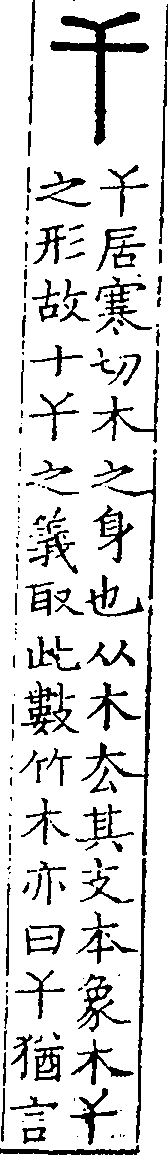 干
干居寒切木之身也从木厺其支本象木干
之形故十干之義取此數竹木亦曰干猶言